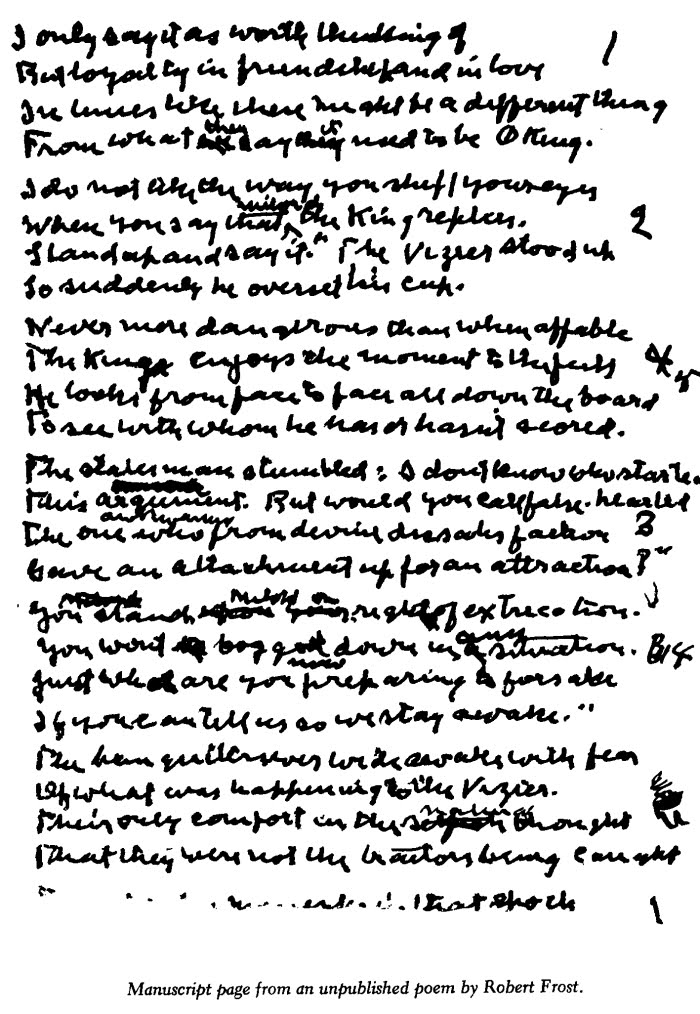 I only say it as worth thinking of 1
But loyalty in friendship and in love
In times like these might be a different thing
From what they say it used to be O King.
I do not like the way you shift your eyes
When you say that, milord the King replies. 2
Stand up and say it." The Vizier stood up
So suddenly he overset his cup.
Never more dangerous than when affable
The King enjoys the moment to the full
He looks from face to face all down the board
To see with whom he has or hasn't scored.
The statesman stumbled: I don't know who started
This argument. But would you call false-hearted
The one who from devine dissatisfaction 3
Gave an attachment up for an attraction?"
You stand Milord on right of extrication.
You wont bog down in any situation. B14
Just who are you now preparing to forsake
If you can tell us so we stay awake."
The banqueters were wide awake with fear
Of what was happening to the Vizier.
Their only comfort in the thought
That they were not the traitors being caught
that shock 1
Manuscript page from an unpublished poem by Robert Frost.